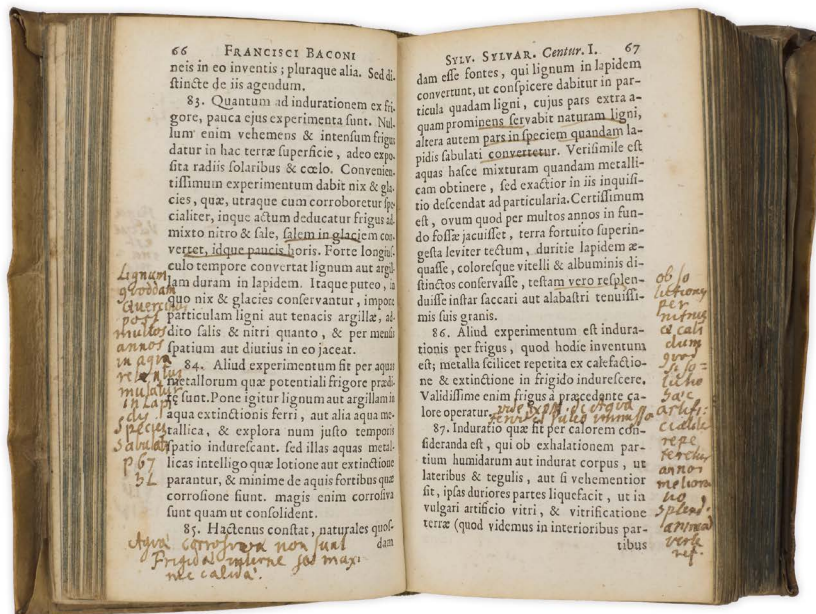 66 FRANCISCI BACONI
neis in eo inventis ; pluraque alia. Sed di-
stincte de iis agendum.
83. Quantum ad indurationem ex fri-
gore, pauca ejus experimenta sunt. Nul-
lum enim vehemens & intensum frigus
datur in hac terræ superficie, adeo expo-
sita radiis solaribus & cœlo. Convenien-
tissimum experimentum dabit nix & gla-
cies, quæ, utraque cum corroboretur spe-
cialiter, inque actum deducatur frigus ad-
mixto nitro & sale, salem in glaciem con-
vertet, idque paucis horis. Forte longius-
culo tempore convertat lignum aut argil-
lam duram in lapidem. Itaque puteo, in
quo nix & glacies conservantur, impone
particulam ligni aut tenacis argillæ, ad-
dito salis & nitri quanto, & per mensis
spatium aut diutius in eo jaceat.
84. Aliud experimentum fit per aquas
metallorum quæ potentiali frigore prædi-
tæ sunt. Pone igitur lignum aut argillam in
aqua extinctionis ferri, aut alia aqua me-
tallica, & explora num justo temporis
spatio indurescant. sed illas aquas metal-
licas intelligo quæ lotione aut extinctione
parantur, & minime de aquis fortibus quæ
corrosione fiunt. magis enim corrosiva
sunt quam ut consolident.
85. Hactenus constat, naturales quos-
dam
Lignum
quoddam
Quercinum
post
multos
annos
in aqua
mutatur
in Lapi
dis
species
sabulati
p 67
3L
Aqua corrosiva non sunt
Frigida interne sed max
me calida.
SYLV. SYLVAR. Centur. I. 67
dam esse fontes, qui lignum in lapidem
convertunt, ut conspicere dabitur in par-
ticula quadam ligni, cujus pars extra a-
quam prominens servabit naturam ligni,
altera autem pars in speciem quandam la-
pidis sabulati convertetur. Verisimile est
aquas hasce mixturam quandam metalli-
cam obtinere, sed exactior in iis inquisi-
tio descendat ad particularia. Certissimum
est, ovum quod per multos annos in fun-
do fossæ jacuisset, terra fortuito superin-
gesta leviter tectum, duritie lapidem æ-
quasse, coloresque vitelli & albuminis di-
stinctos conservasse, testam vero resplen-
duisse instar saccari aut alabastri tenuissi-
mis suis granis.
86. Aliud experimentum est indura-
tionis per frigus, quod hodie inventum
est; metalla scilicet repetita ex calefactio-
ne & extinctione in frigido indurescere.
Validissime enim frigus a præcedente ca-
lore operatur.
87. Induratio quæ fit per calorem con-
sideranda est, qui ob exhalationem par-
tium humidarum aut indurat corpus, ut
lateribus & tegulis, aut si vehementior
sit, ipsas duriores partes liquefacit, ut in
vulgari artificio vitri, & vitrificatione
terræ (quod videmus in interioribus par-
tibus
per
nitrum
& cali
dum
quod
annos